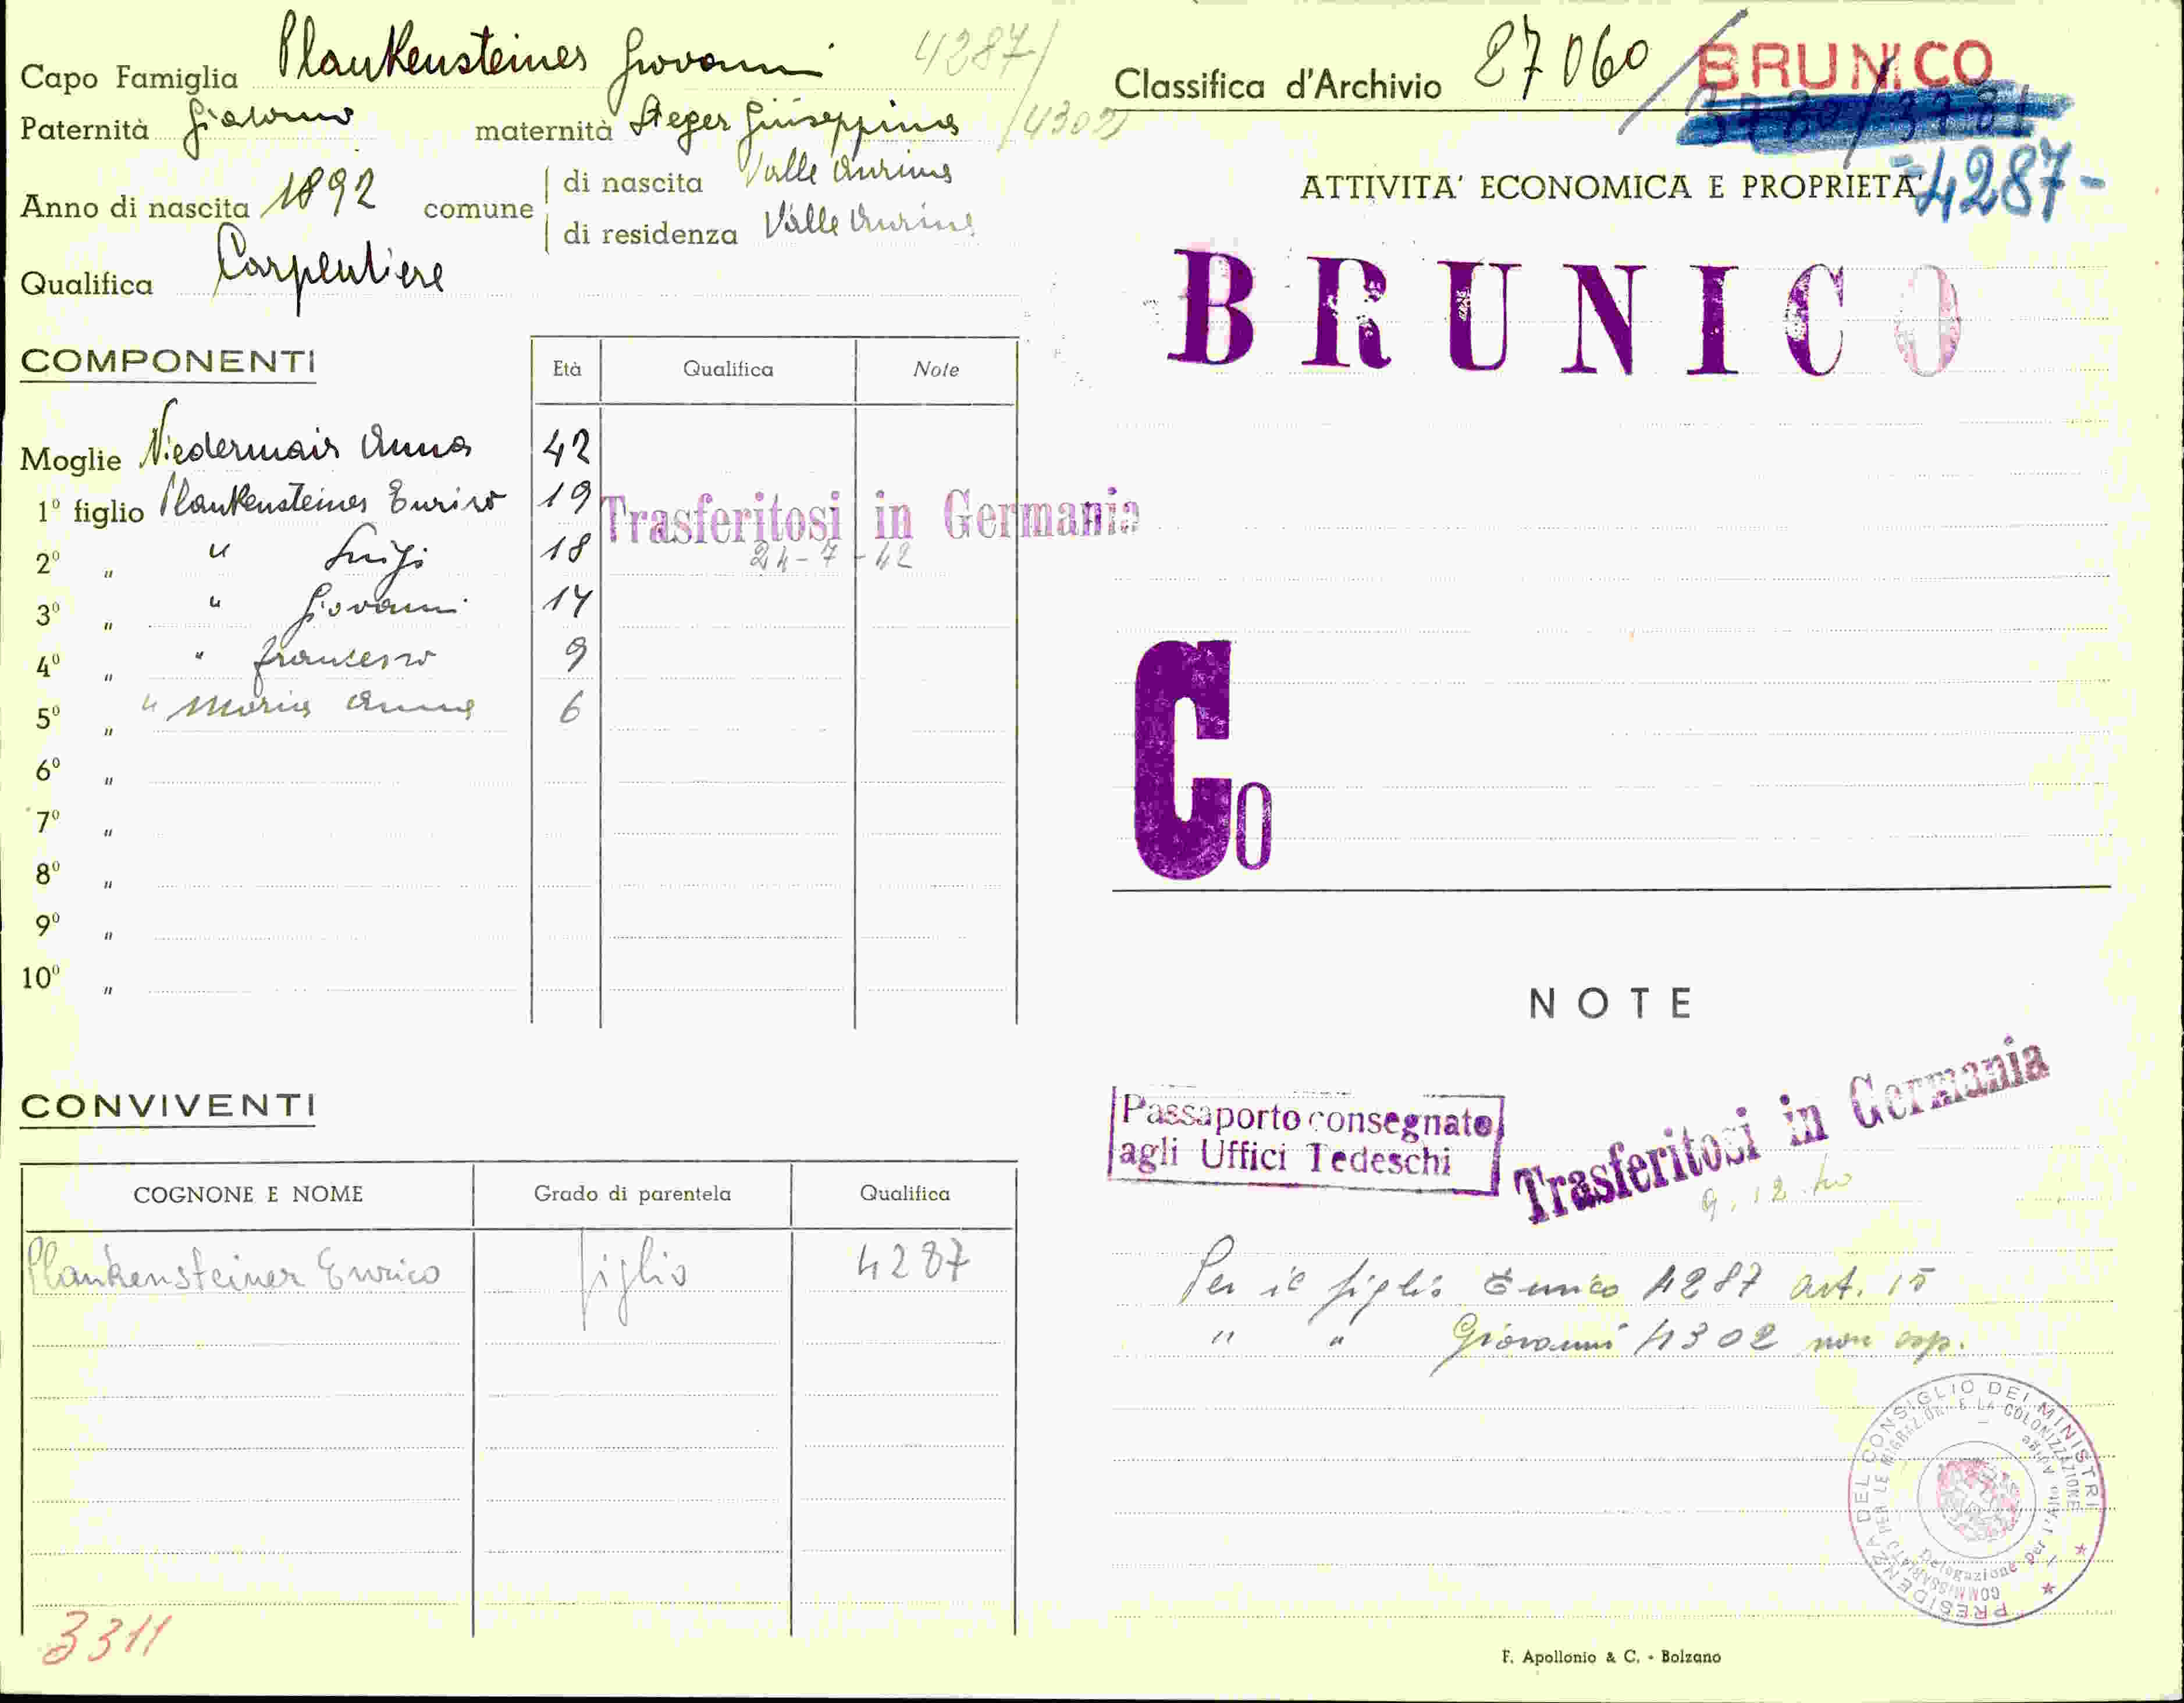 Capo Famiglia Plankensteiner Giovanni 4287/
Paternità Giacomo maternità Steger Giuseppina /4302
Anno di nascita 1892 comune di nascita Valle Aurina
di residenza Valle Aurina
Qualifica Carpentiere
COMPONENTI
Età Qualifica Note
Moglie Niedermair Anna 42
1º figlio Plankensteiner Enrico 19
Trasferitosi in Germania
2º " " Luigi 18
24-7-42
3º " " Giovanni 14
4º " " Francesco 9
5º " " Maria Anna 6
6º "
7º "
8º "
9º "
10º "
CONVIVENTI
COGNONE E NOME Grado di parentela Qualifica
Plankensteiner Enrico figlio 4287
3311
Classifica d'Archivio 27060 / BRUNICO
3780/3781
ATTIVITA' ECONOMICA E PROPRIETA' =4287-
BRUNICO
Co
NOTE
Passaporto consegnato
agli Uffici Tedeschi
Trasferitosi in Germania
9.12.40
Per il figlio Enrico 4287 art. 15
" " Giovanni 4302 non esp.
PRESIDENZA DEL CONSIGLIO DEI MINISTRI
COMMISSARIATO PER LE MIGRAZIONI E LA COLONIZZAZIONE
Delegazione per l'Alto Adige
F. Apollonio & C. - Bolzano